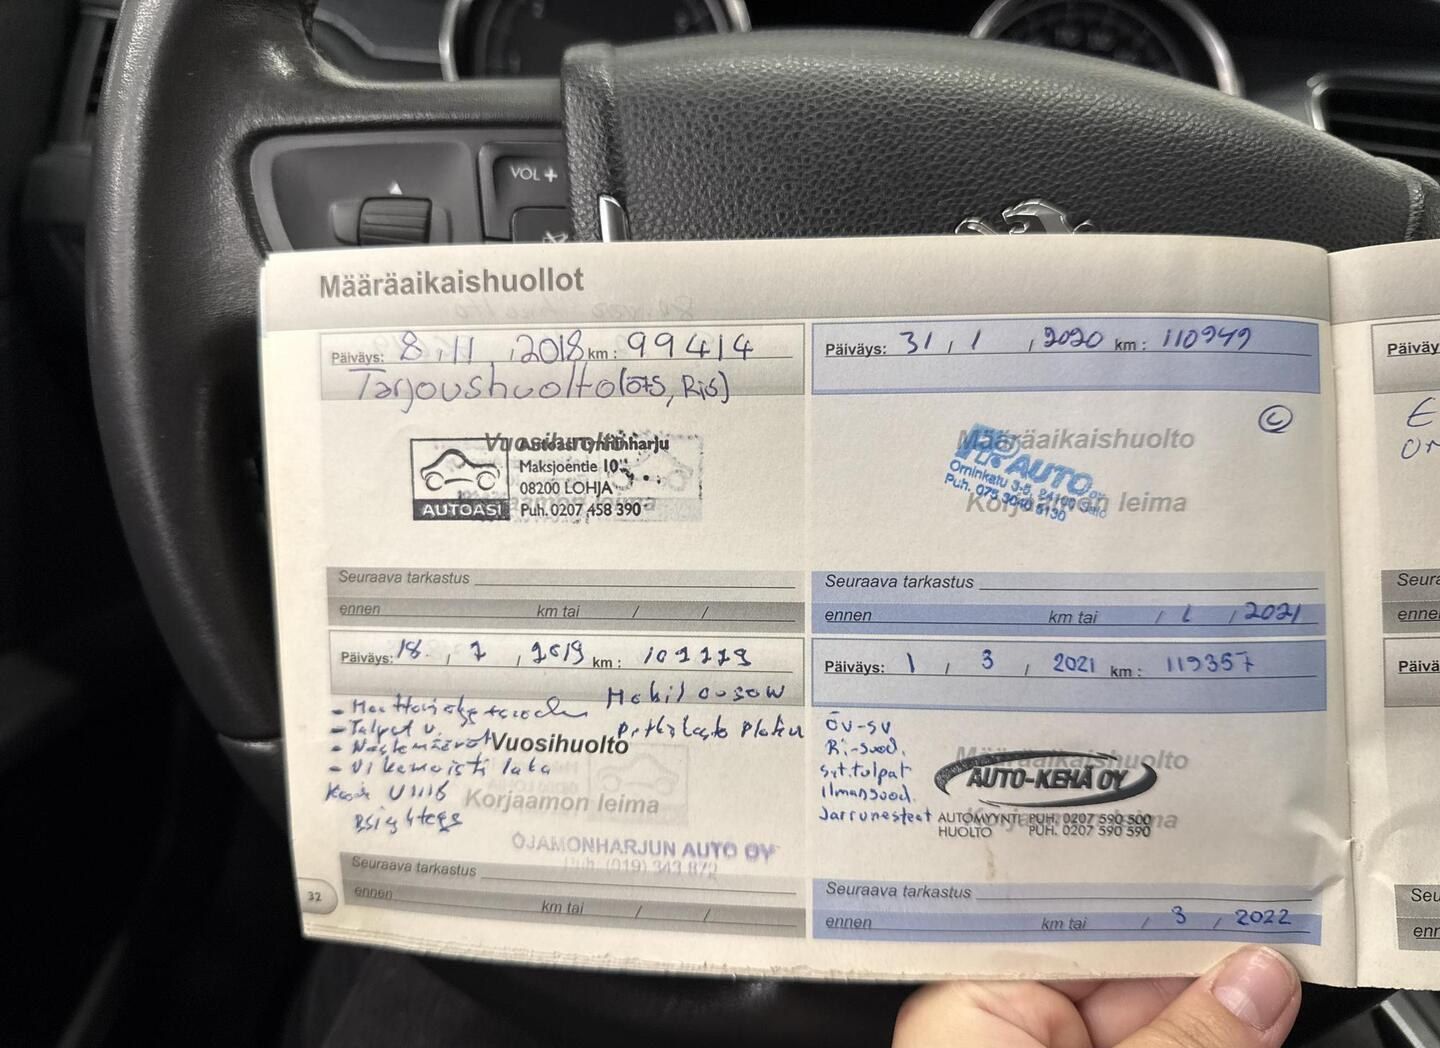 VOL +
Määräaikaishuollot
Päiväys: 8 . 11 . / 2018 km : 99414
Tarjoushuolto (öts, Ris)
Vuosihuolto
Autoasi Tynninharju
Maksjoentie 10
08200 LOHJA
AUTOASI
Puh. 0207 458 390
Korjaamon leima
Seuraava tarkastus
ennen km tai / /
Päiväys: 18. / 7 / 2019 km :
Mobil
Vuosihuolto
Korjaamon leima
OJAMONHARJUN AUTO OY
Puh. (019) 343 872
Seuraava tarkastus
ennen km tai / /
32
Päiväys: 31 / 1 / 2020 km : 110949
Määräaikaishuolto
AUTO OY
Ominkatu 3-5, 24100 Salo
Puh. 075 3040 5130
Korjaamon leima
Seuraava tarkastus
ennen km tai / 1 / 2021
Päiväys: 1 / 3 / 2021 km : 119357
ÖV-SV
Ri-suod.
Syt.tulpat
ilmansuod.
Jarrunesteet
Määräaikaishuolto
AUTO-KEHÄ OY
AUTOMYYNTI PUH. 0207 590 500
HUOLTO PUH. 0207 590 590
Korjaamon leima
Seuraava tarkastus
ennen km tai / 3 / 2022